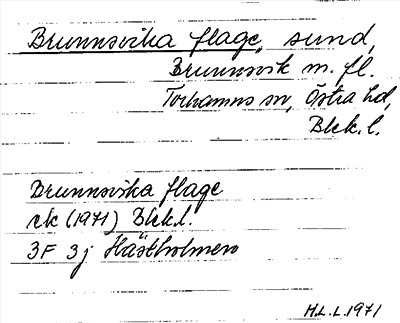 Brunnsvika flage, sund,
Brunnsvik m. fl.
Torhamns sn, Östra hd,
Blek. l.
Brunnsvika flage
ek (1971) Blek.l.
3F 3j Hästholmen
H.L.L.1971